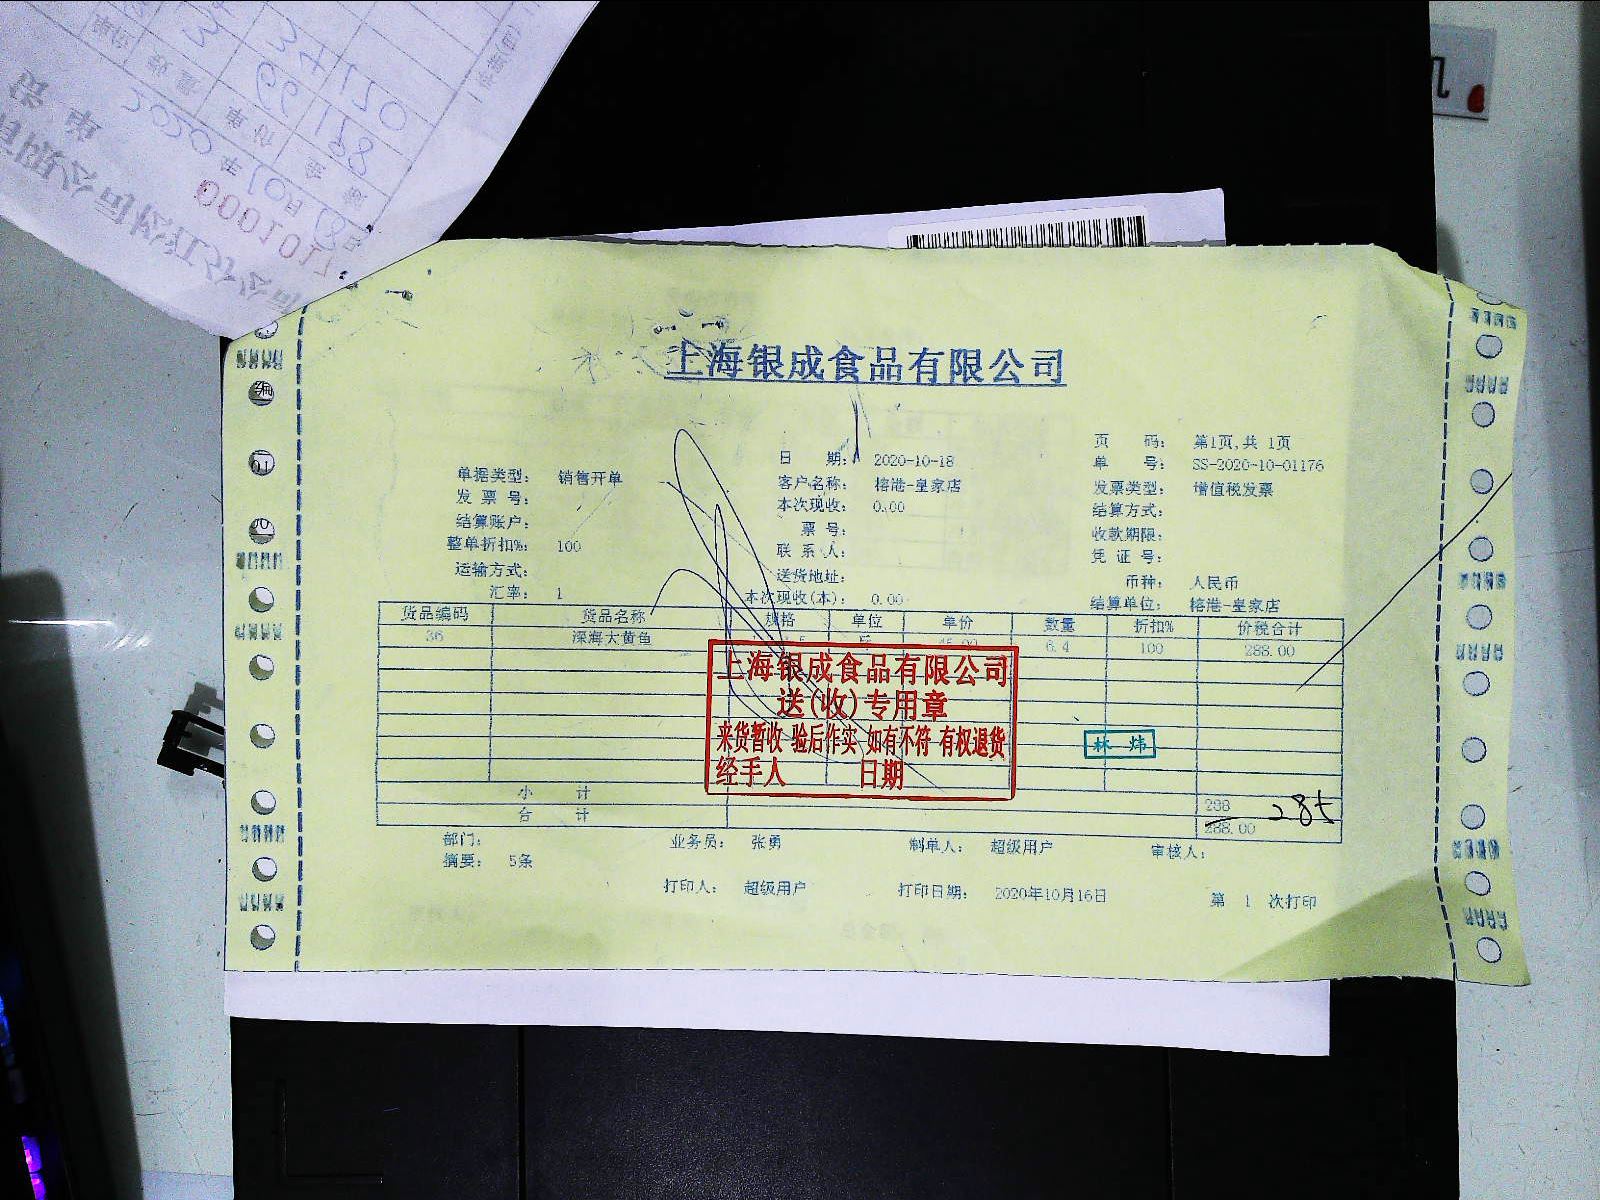 上海银成食品有限公司
页 码: 第1页,共 1页
日 期: 2020-10-18
单 号: SS-2020-10-01176
单据类型: 销售开单
客户名称: 榕港-皇家店
发票类型: 增值税发票
发 票 号:
本次现收: 0.00
结算方式:
结算账户:
票 号:
收款期限:
整单折扣%: 100
联 系 人:
凭 证 号:
运输方式:
送货地址:
币种: 人民币
汇率: 1
本次现收(本): 0.00
结算单位: 榕港-皇家店
货品编码 货品名称 规格 单位 单价 数量 折扣% 价税合计
36 深海大黄鱼 45.00 6.4 100 288.00
上海银成食品有限公司
送(收)专用章
来货暂收 验后作实 如有不符 有权退货
经手人 日期
林 炜
小 计 288
285
合 计 288.00
部门: 业务员: 张勇 制单人: 超级用户 审核人:
摘要: 5条
打印人: 超级用户 打印日期: 2020年10月16日 第 1 次打印